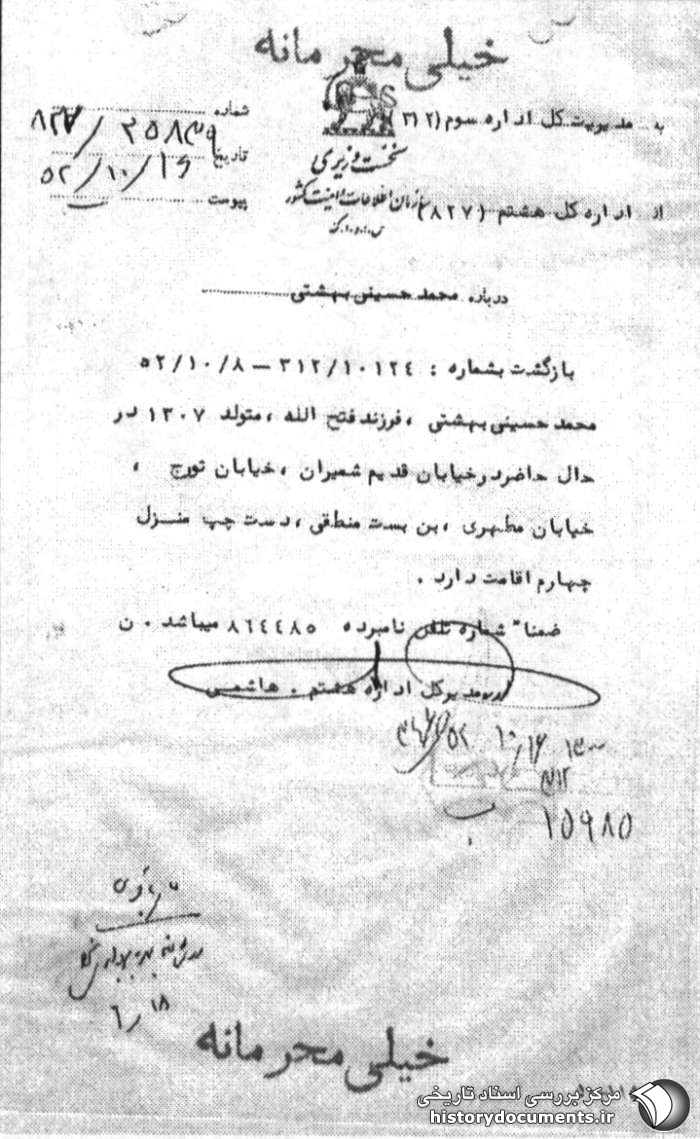 خیلی محرمانه
به مدیریت کل اداره سوم (۳۱۲)
از اداره کل هشتم (۸۲۷)
نخست وزیری
سازمان اطلاعات و امنیت کشور
س.ا.و.ا.ک
شماره ۸۲۷/
تاریخ ۵۲/۱۰/۱۶
پیوست
درباره محمد حسینی بهشتی
بازگشت بشماره : ۳۱۲/۱۰۱۲۴ – ۵۲/۱۰/۸
محمد حسینی بهشتی ، فرزند فتح الله ، متولد ۱۳۰۷ در
حال حاضر در خیابان قدیم شمیران ، خیابان تورج ،
خیابان مطهری ، بن بست منطقی ، دست چپ منزل
چهارم اقامت دارد .
ضمنا" شماره تلفن نامبرده ۸۶۴۴۸۵ میباشد . ن
مدیر کل اداره هشتم . هاشمی
۱۰/۱۶
۳۱۲
۱۵۹۸۵
۶/۱۸
خیلی محرمانه
مرکز بررسی اسناد تاریخی
historydocuments.ir